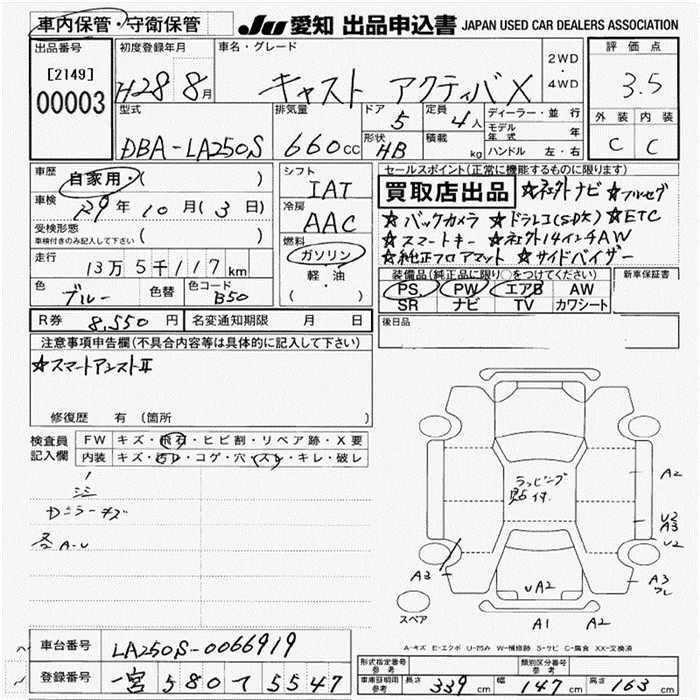 車内保管・守衛保管
JU 愛知 出品申込書 JAPAN USED CAR DEALERS ASSOCIATION
出品番号 初度登録年月 車名・グレード 評価点
[2149] 00003 H28 8月 キャスト アクティバX 2WD・4WD 3.5
型式 排気量 ドア 定員 ディーラー・並行 外装 内装
DBA-LA250S 660cc 5 4人 モデル年式 年 C C
形状 HB 積載 kg ハンドル 左・右
車歴 自家用・( ) シフト IAT セールスポイント(正常に機能するものに限ります)
車検 R9年10月(3日) 冷房 AAC 買取店出品 ☆ネオクトナビ ☆フルセグ
受検形態 車検付きのみ記入して下さい ( ) 燃料 ☆バックカメラ ☆ドラレコ(SD欠) ☆ETC
走行 13万5千117km ガソリン ☆スマートキー ☆ネオクト14インチAW
軽・油 ( ) ☆純正フロアマット ☆サイドバイザー
色 ブルー 色替 色コード B50 装備品(純正品に限り○をつけてください) 新車保証書
PS PW エアB AW
SR ナビ TV カワシート
R券 8,550円 名変通知期限 月 日 後日品
注意事項申告欄(不具合内容等は具体的に記入して下さい)
☆スマートアシストⅡ
修復歴 有 (箇所
検査員記入欄 FW キズ・飛石・ヒビ割・リペア跡・X要
内装 キズ・汚レ・コゲ・穴・スレ・キレ・破レ
Dミラーキズ
各A-U
ラッピング
貼付
A2
U2
A3
U2
A3
UA2
A3
フレ
スペア
A1 A2
A-キズ E-エクボ U-凹み W-補修跡 S-サビ C-腐食 XX-交換済
車台番号 LA250S-0066919
登録番号 一宮 580 て 5547
形式指定番号 類別区分番号
車庫証明用参考 長さ 339cm 幅 147cm 高さ 163cm